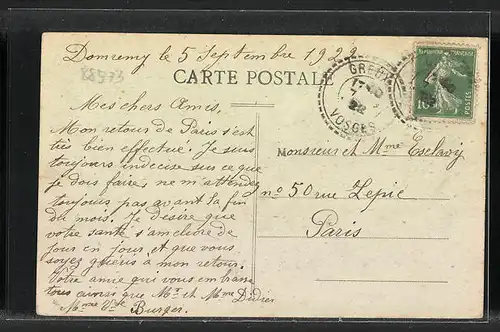 Domremy le 5 Septembre 1922
88573
CARTE POSTALE
Mes chers Amis.
Mon retour de Paris s'est
très bien effectué. Je suis
toujours indecise sur ce que
je dois faire, ne m'attendez
toujours pas avant la fin
du mois. Je désire que
votre santé s'améliore de
jour en jour et que vous
soyez guéris à mon retour.
Votre amie qui vous embrasse
tous ainsi que Mr et Mme Didier
Mme Vve Burger.
GREUX
17
7
22
VOSGES
REPUBLIQUE FRANÇAISE
10
POSTES
Monsieur et Mme Esclavy
no 50 rue Lepic
Paris